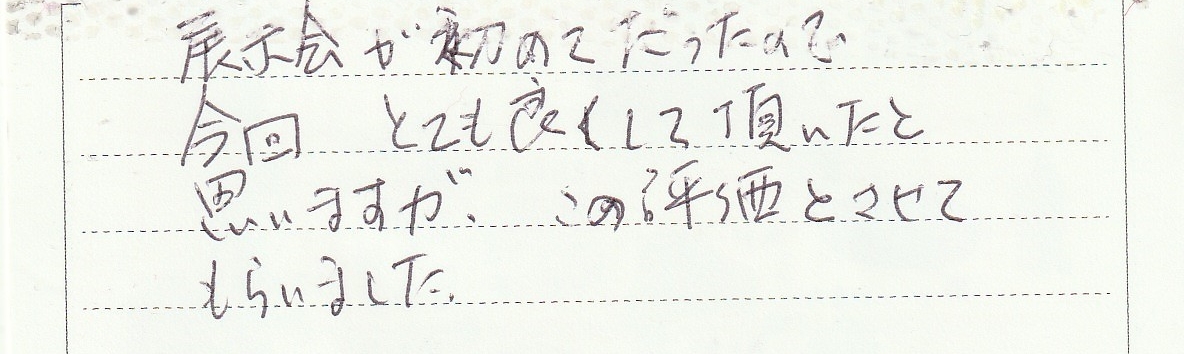 展示会が初めてだったので
今回 とても良くして頂いたと
思いますが、この評価とさせて
もらいました。